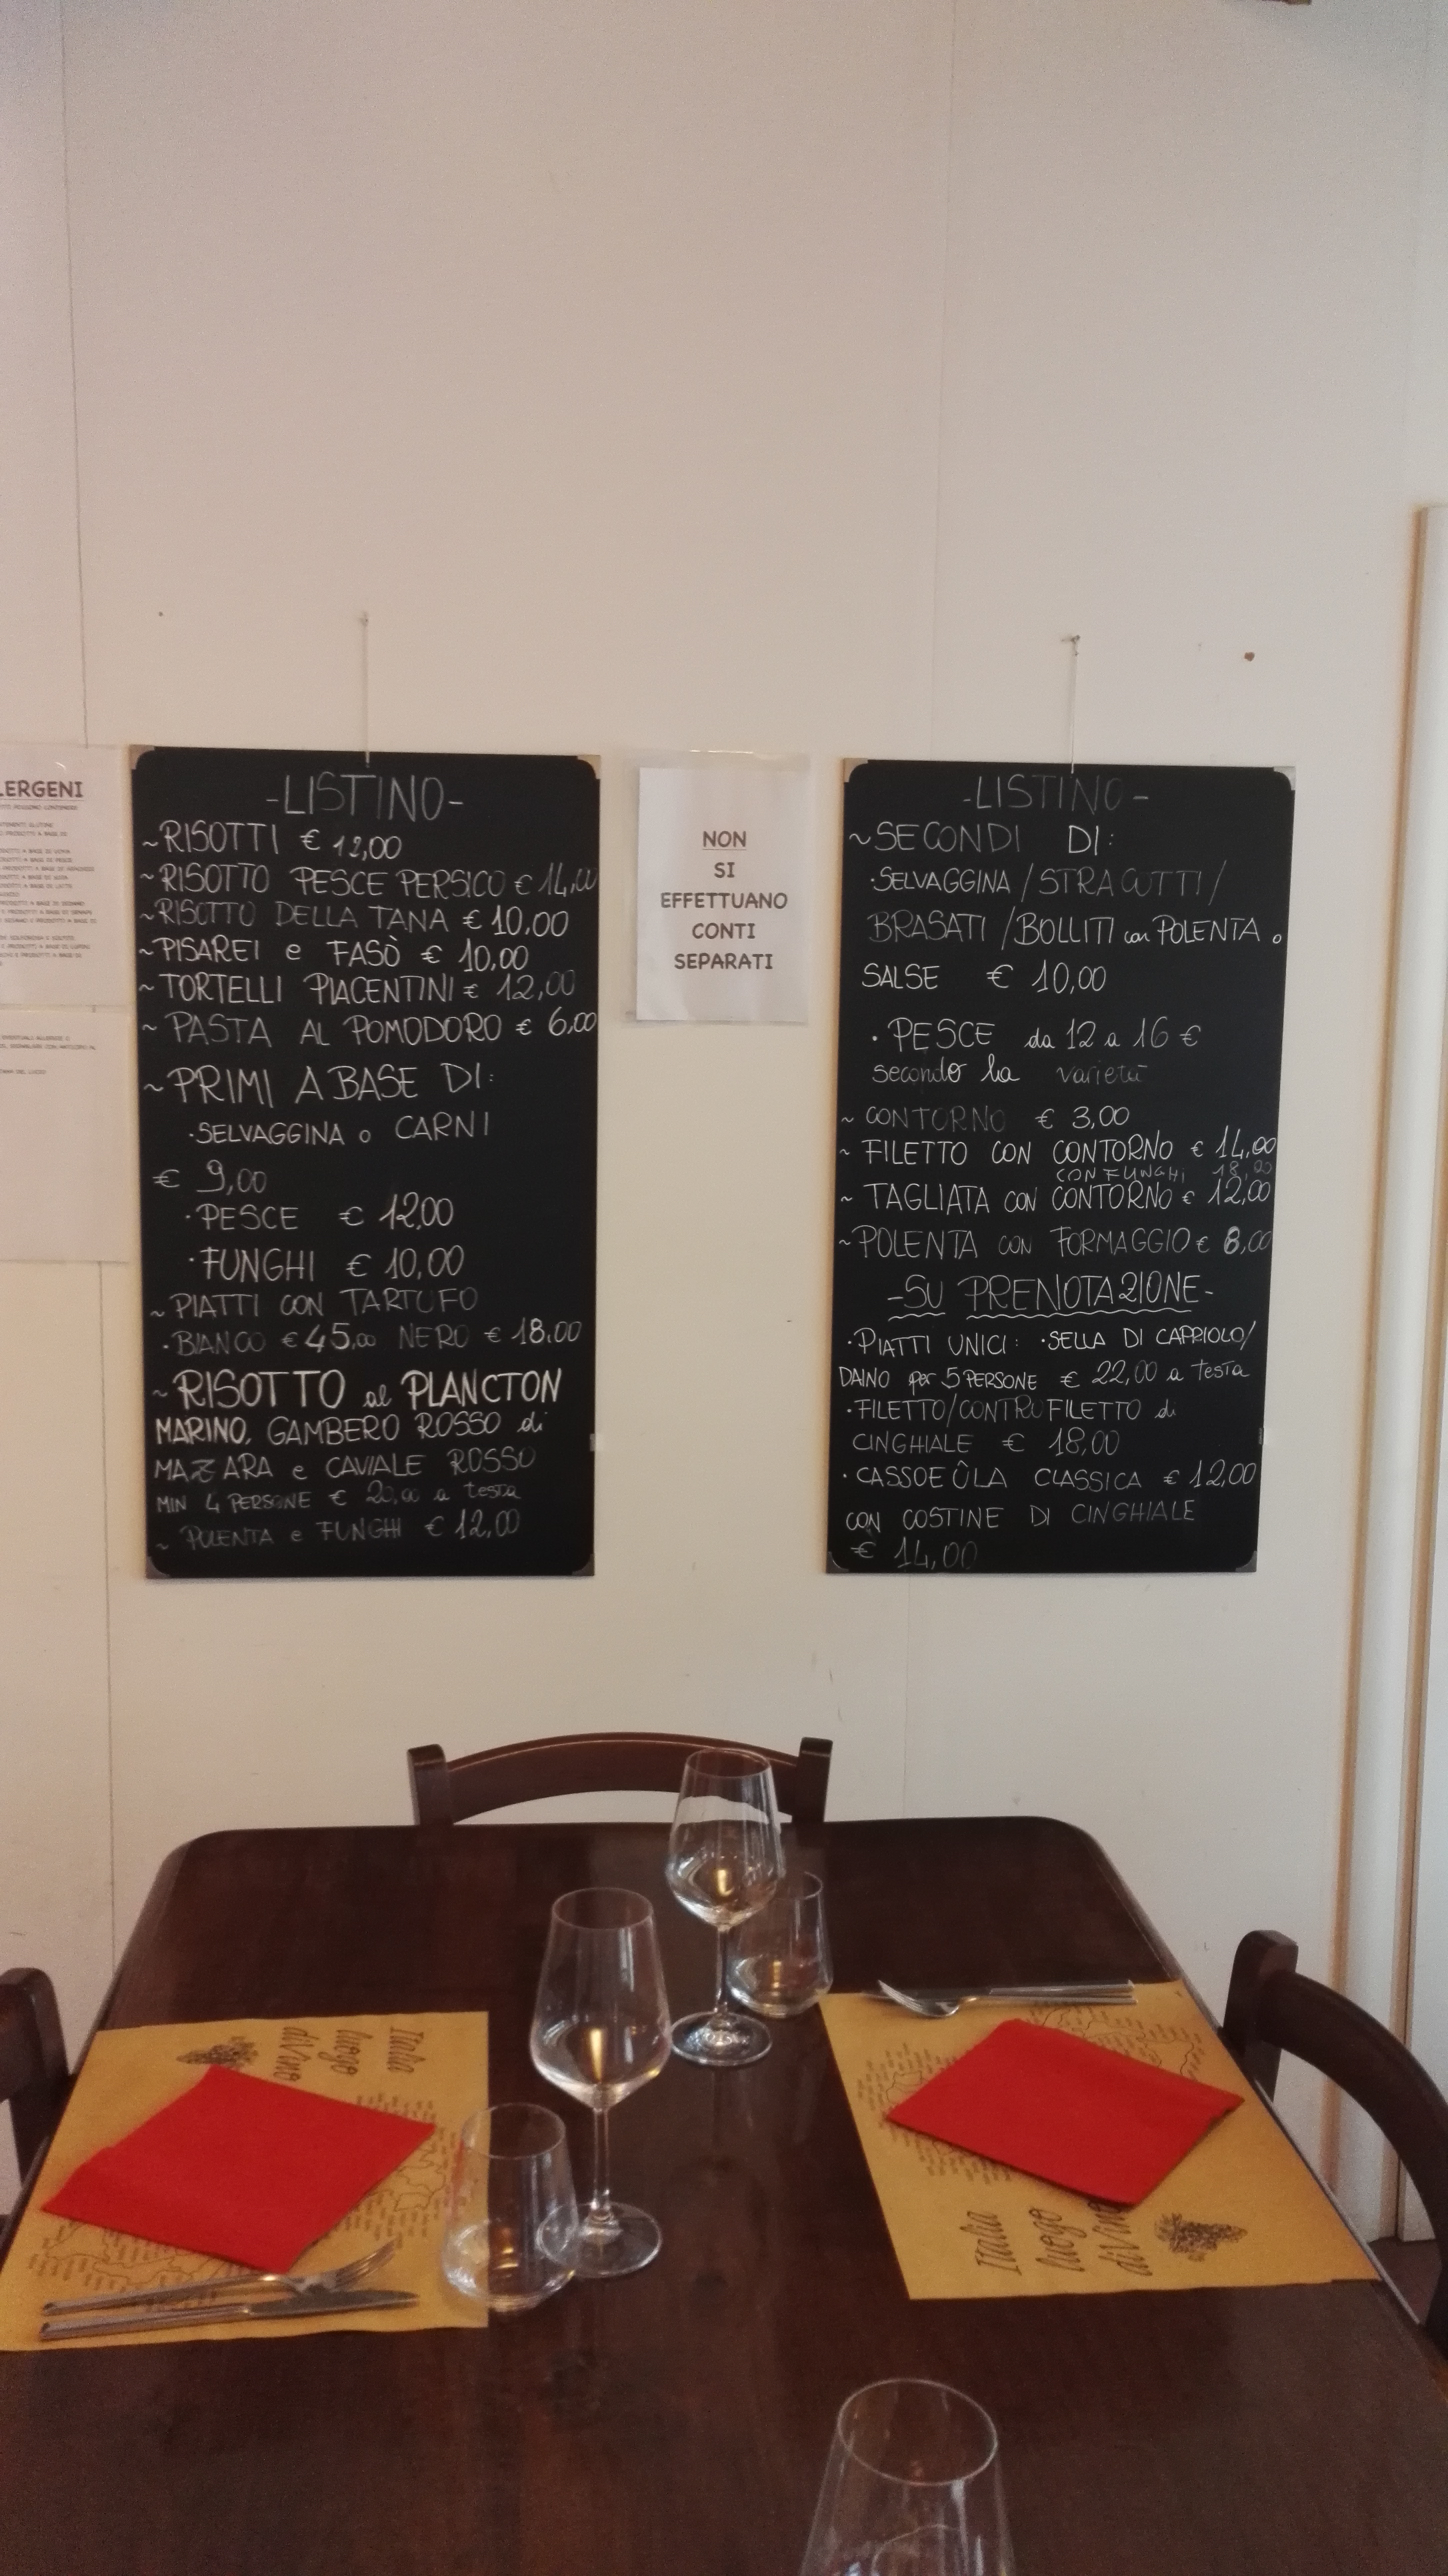 LERGENI
-LISTINO-
~RISOTTI € 12,00
~RISOTTO PESCE PERSICO € 14,00
~RISOTTO DELLA TANA € 10,00
~PISAREI e FASÒ € 10,00
~TORTELLI PIACENTINI € 12,00
~PASTA AL POMODORO € 6,00
~PRIMI A BASE DI:
·SELVAGGINA o CARNI
€ 9,00
·PESCE € 12,00
·FUNGHI € 10,00
~PIATTI CON TARTUFO
·BIANCO € 45,00 NERO € 18,00
~RISOTTO al PLANCTON
MARINO, GAMBERO ROSSO di
MAZARA e CAVIALE ROSSO
MIN 4 PERSONE € 20,00 a testa
~ POLENTA e FUNGHI € 12,00
NON
SI
EFFETTUANO
CONTI
SEPARATI
-LISTINO-
~SECONDI DI:
·SELVAGGINA/STRACOTTI/
BRASATI/BOLLITI con POLENTA o
SALSE € 10,00
·PESCE da 12 a 16 €
secondo la varietà
~ CONTORNO € 3,00
~ FILETTO CON CONTORNO € 14,00
CON FUNGHI 18,00
~ TAGLIATA CON CONTORNO € 12,00
~POLENTA CON FORMAGGIO € 8,00
-SU PRENOTAZIONE-
·PIATTI UNICI: ·SELLA DI CAPRIOLO/
DAINO per 5 PERSONE € 22,00 a testa
·FILETTO/CONTROFILETTO di
CINGHIALE € 18,00
·CASSOEÛLA CLASSICA € 12,00
CON COSTINE DI CINGHIALE
€ 14,00
Italia
luogo
diVino
Italia
luogo
diVino